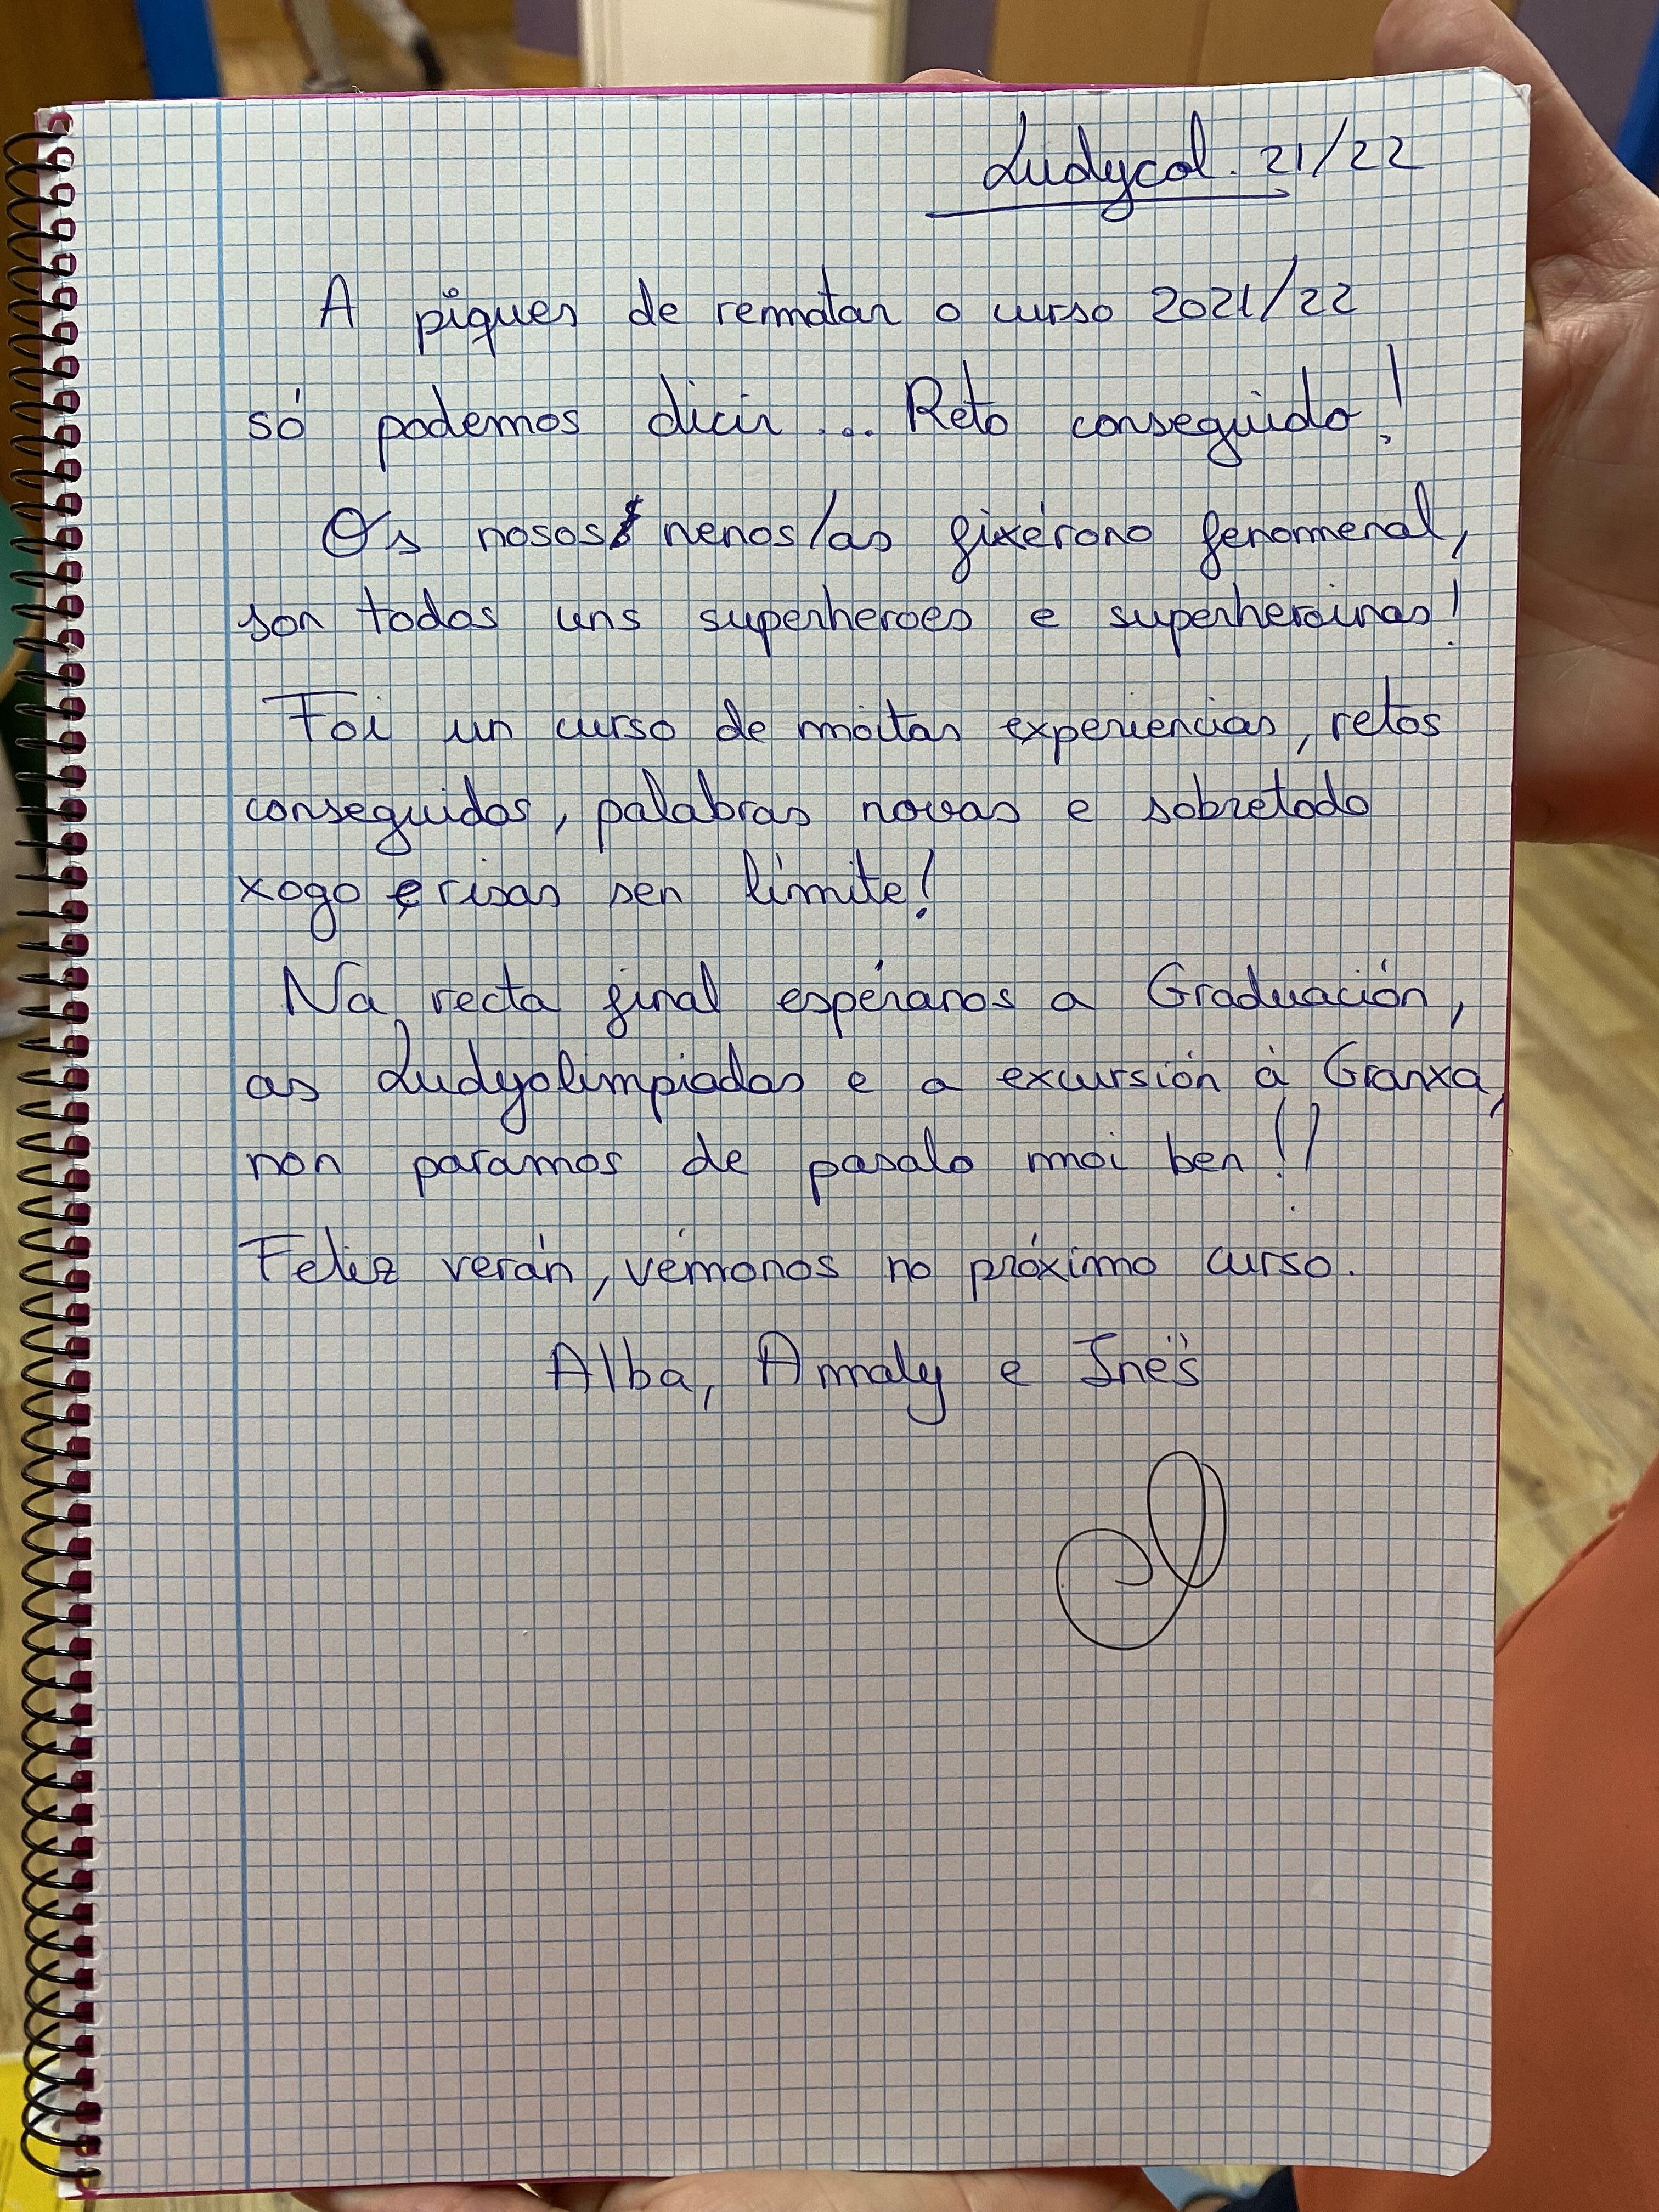 Ludycol. 21/22
A piques de rematar o curso 2021/22
só podemos dicir ... Reto conseguido!
Os nosos nenos/as fixérono fenomenal,
son todos uns superheroes e superheroinas!
Foi un curso de moitas experiencias, retos
conseguidos, palabras novas e sobretodo
xogo e risas sen límite!
Na recta final espéranos a Graduación,
as Ludyolimpiadas e a excursión á Granxa,
non paramos de pasalo moi ben!!
Feliz verán, vémonos no próximo curso.
Alba, Amaly e Inés